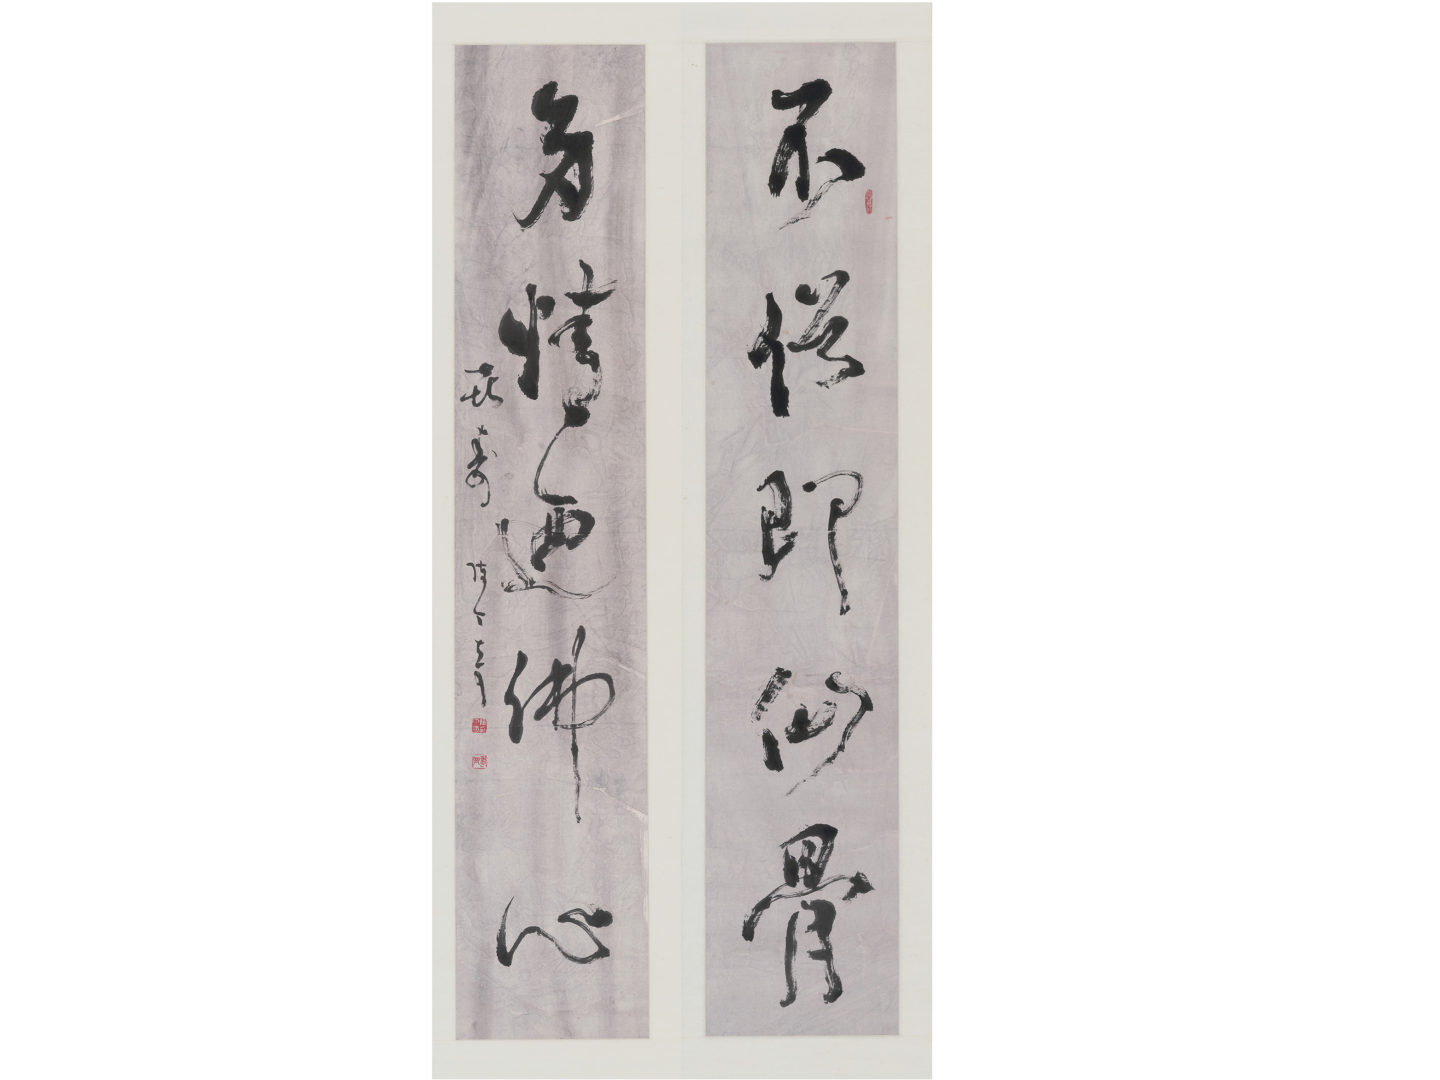 不俗即仙骨
多情迺佛心